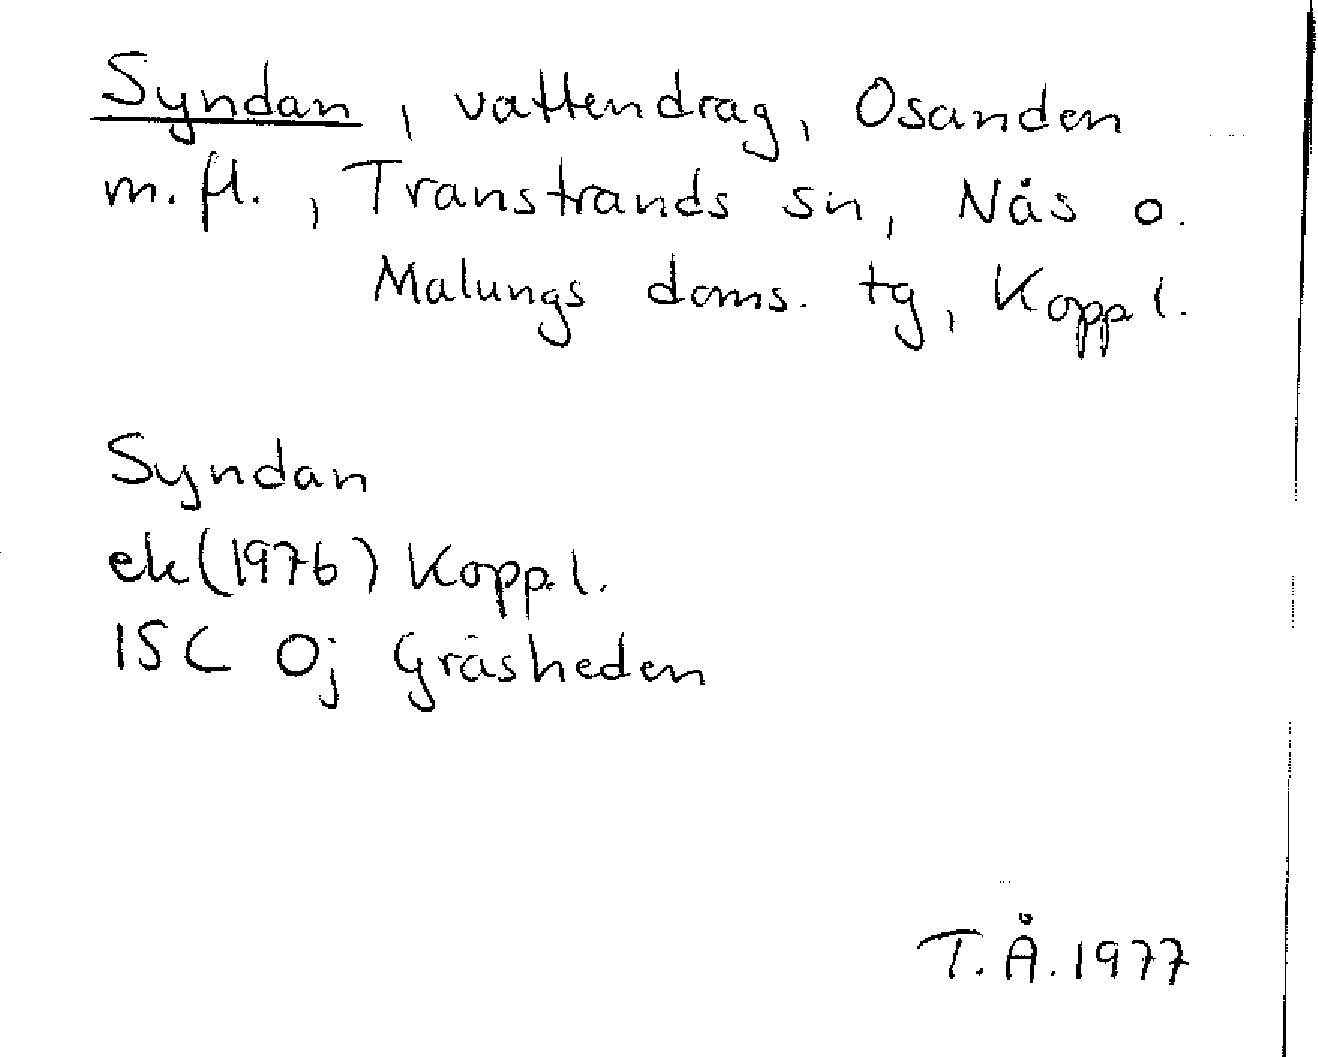 Syndan, vattendrag, Osanden
m.fl., Transtrands sn, Nås o.
Malungs doms. tg, Koppl.
Syndan
ek(1976) Koppl.
15C 0j Gräsheden
T.Å.1977